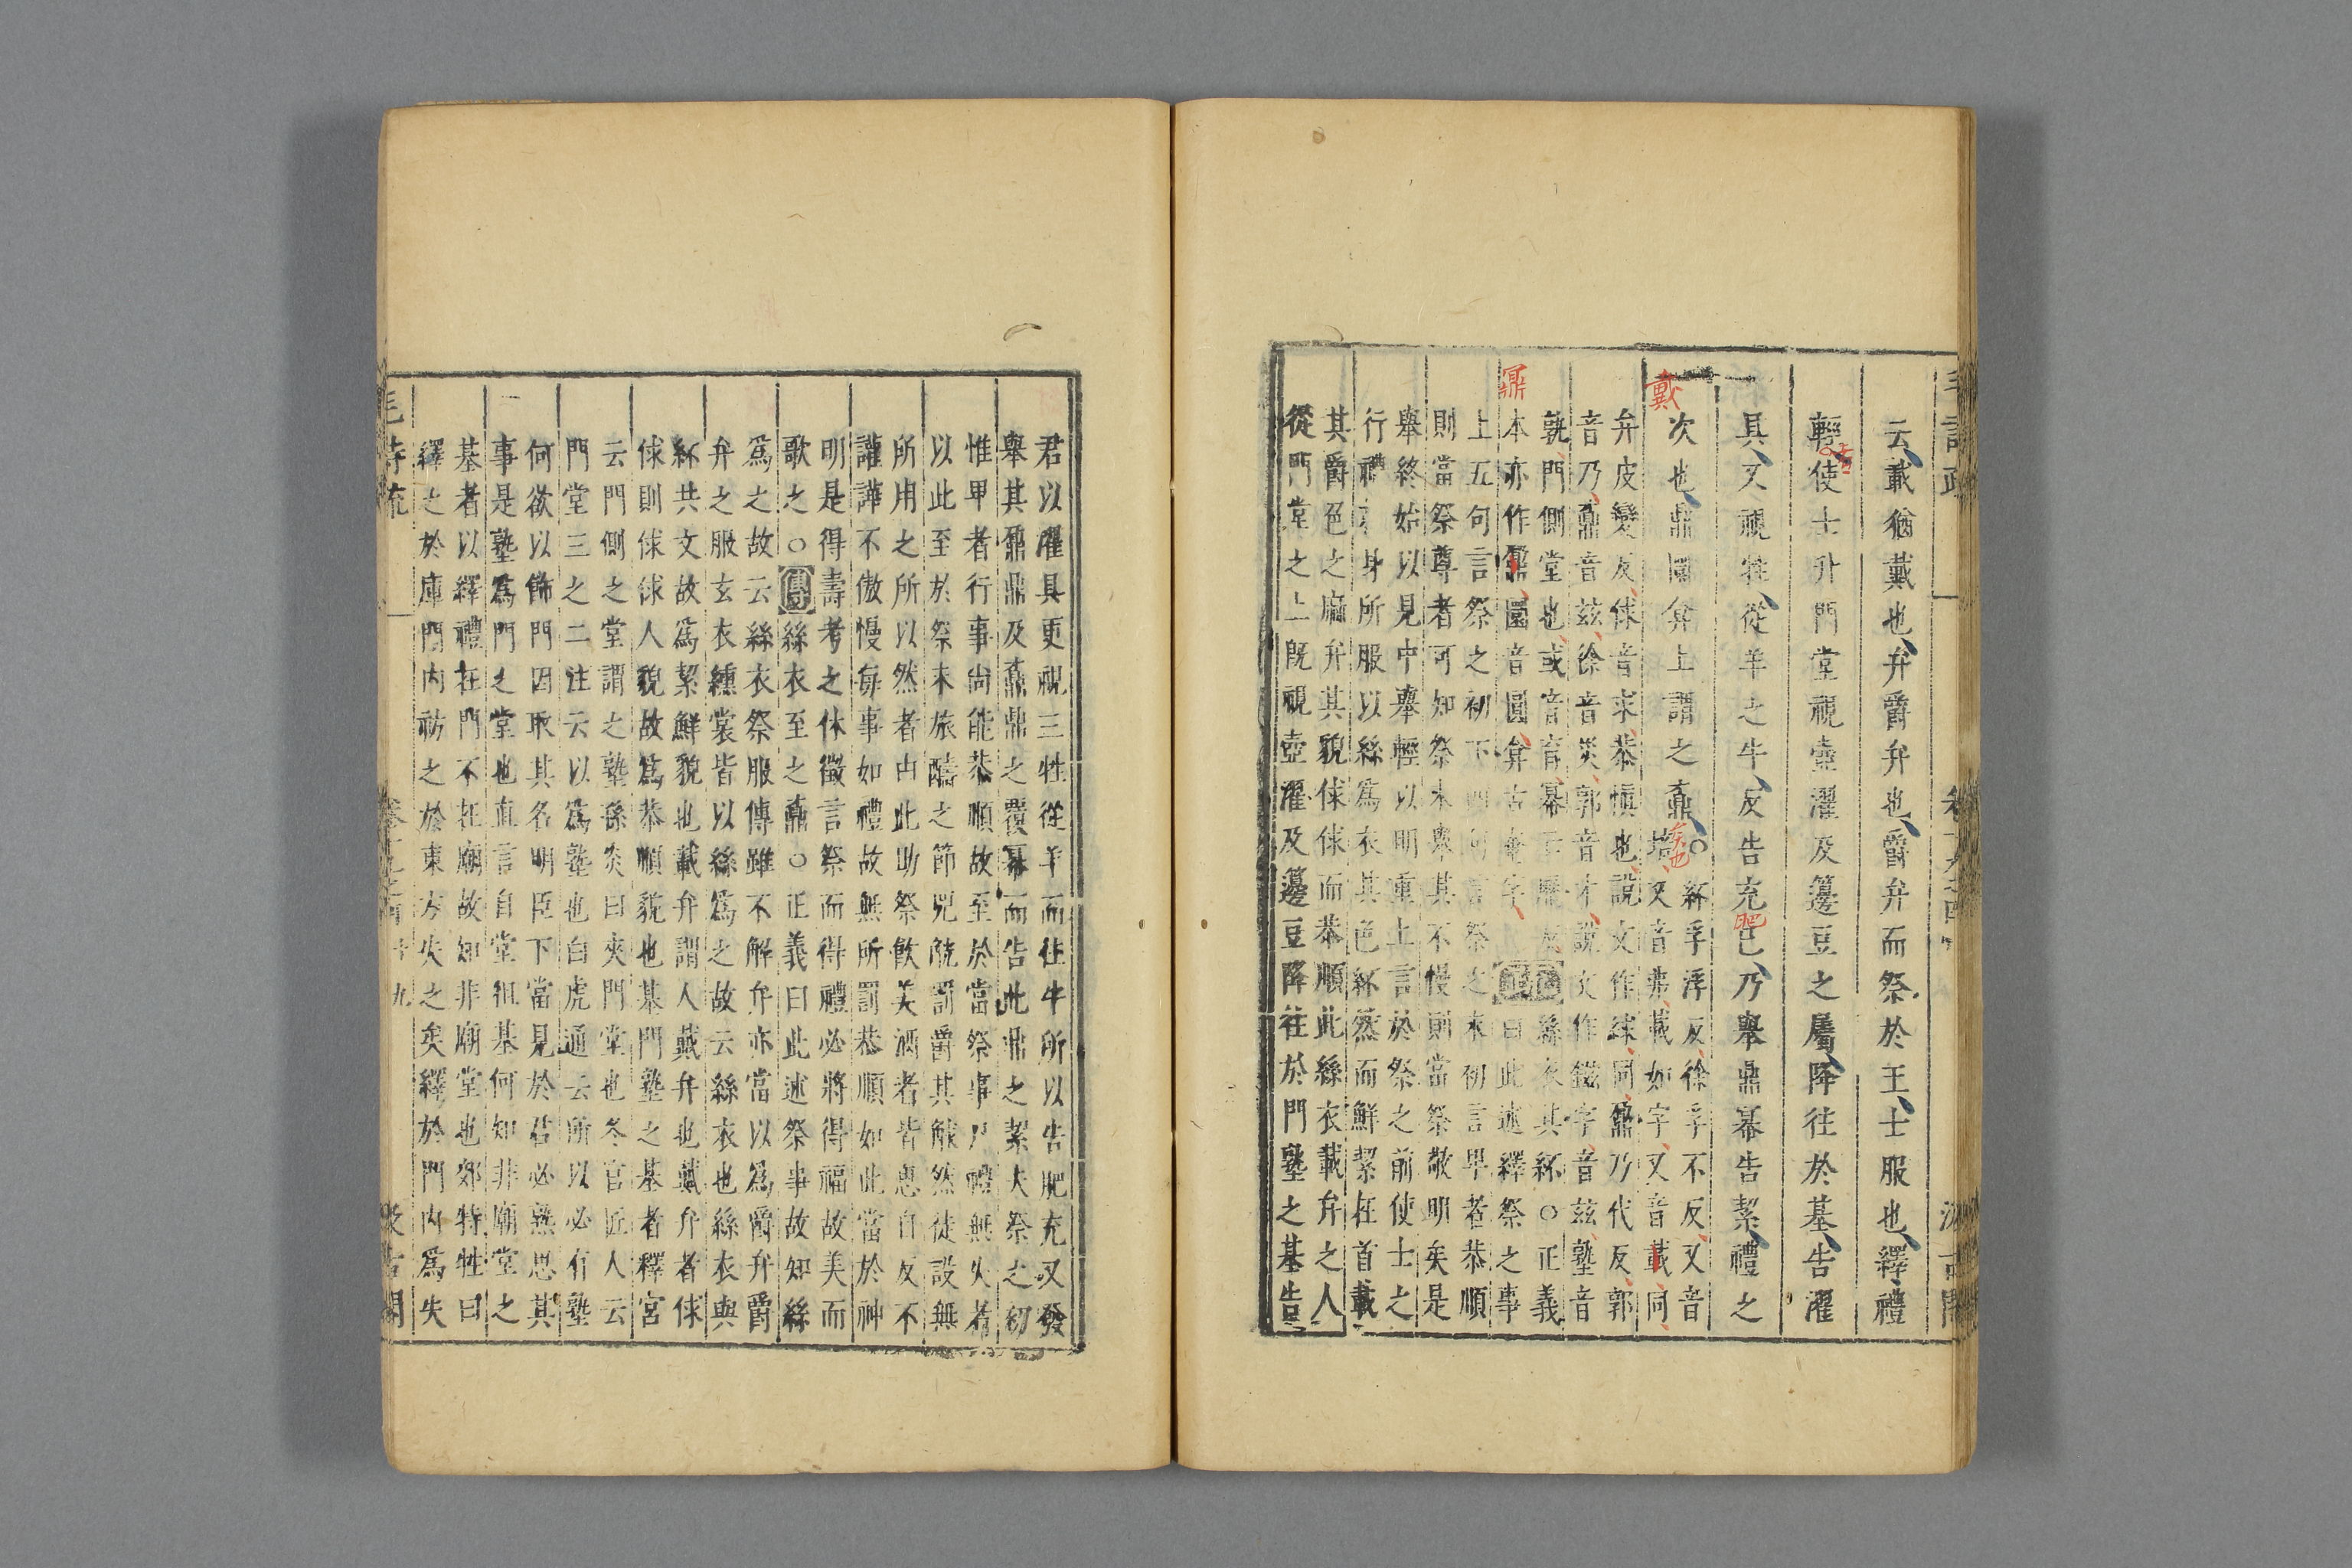 云載猶戴也弁爵弁也爵弁而祭於王士服也繹禮
輕使士升門堂視壺濯及籩豆之屬降往於基告濯
具又視牲從羊之牛反告充已乃舉鼎冪告絜禮之
次也鼎圜弇上謂之鼒○
紑孚浮反徐孚不反又音
培又音弗載如字又音戴同
弁皮變反俅音求恭愼也說文作絿同鼐乃代反郭
音乃鼒音玆徐音災郭音才說文作鎡字音玆塾音
孰門側堂也或音育冪
本亦作鼏圜音圓弇古
絲衣其紑○正義
曰此述繹祭之事
上五句言祭之初下四句言祭之末初言卑者恭順
則當祭尊者可知祭末舉其不慢則當祭敬明矣是
舉終始以見中舉輕以明重上言於祭之前使士之
行禮
身所服以絲爲衣其色紑然而鮮絜在首載
其爵色之麻弁其貌俅俅而恭順此絲衣載弁之人
從門堂之上旣視壺濯及籩豆降往於門塾之基告
君以濯具更視三牲從羊而往牛所以告肥充又發
舉其鼐鼎及鼒鼎之覆冪而告此鼎之絜夫祭之初
惟卑者行事尚能恭順故至於當祭事尸禮無失者
以此至於祭末旅酬之節兕觥罰爵其觩然徒設無
所用之所以然者由此助祭飮美酒者皆思自反不
讙譁不傲慢每事如禮故無所罰恭順如此當於神
明是得壽考之休徵言祭而得禮必將得福故美而
歌之○傳絲衣至之鼒○正義曰此述祭事故知絲
爲之故云絲衣祭服傳雖不解弁亦當以爲爵弁爵
弁之服玄衣纁裳皆以絲爲之故云絲衣也絲衣與
紑共文故爲絜鮮貌也載弁謂人戴弁也戴弁者俅
俅則俅俅人貌故爲恭順貌也基門塾之基者釋宮
云門側之堂謂之塾孫炎曰夾門堂也冬官匠人云
門堂三之二注云以爲塾也白虎通云所以必有塾
何欲以飾門因取其名明臣下當見於君必熟思其
事是塾爲門之堂也直言自堂徂基何知非廟堂之
基者以繹禮在門不在廟故知非廟堂也郊特牲曰
繹之於庫門內祊之於東方失之矣繹於門內爲失
戴
鼏
肥